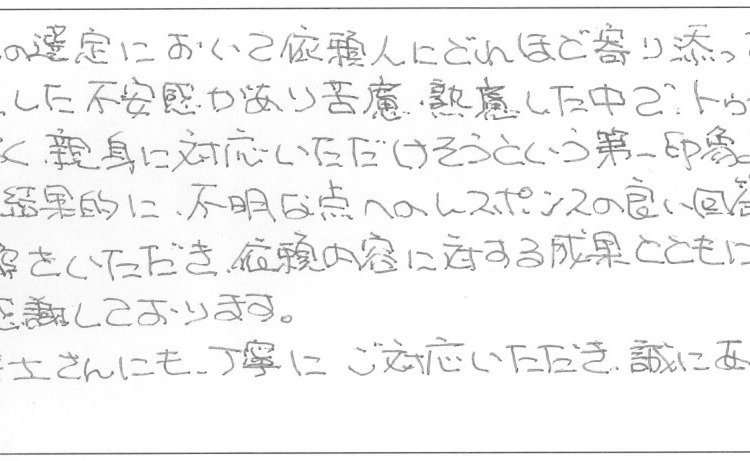 の選定において依頼人にどれほど寄り添っ
した不安感があり苦慮、熟慮した中で、トゥ
く、親身に対応いただけそうという第一印象
結果的に、不明な点へのレスポンスの良い回答
をいただき、依頼内容に対する成果とともに
感謝しております。
士さんにも、丁寧にご対応いただき、誠にあ